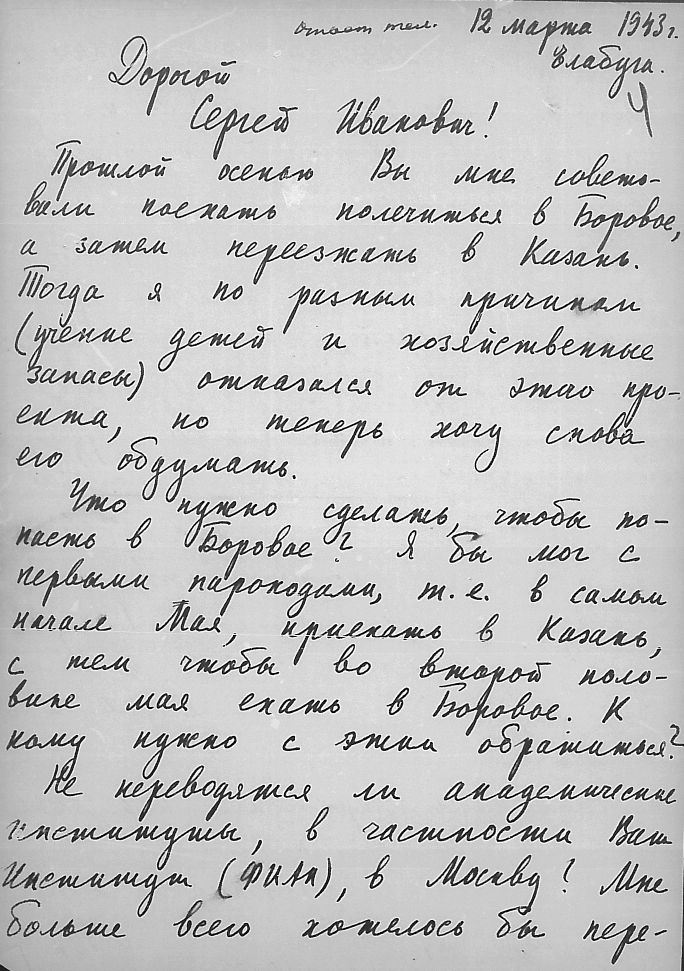 Ответ тел. 12 марта 1943 г.
Елабуга.
4
Дорогой
Сергей Иванович!
Прошлой осенью Вы мне совето-
вали поехать полечиться в Боровое,
а затем переезжать в Казань.
Тогда я по разным причинам
(учение детей и хозяйственные
запасы) отказался от этого про-
екта, но теперь хочу снова
его обдумать.
Что нужно сделать, чтобы по-
пасть в Боровое? Я бы мог с
первыми пароходами, т.е. в самом
начале Мая, приехать в Казань,
с тем чтобы во второй поло-
вине мая ехать в Боровое. К
кому нужно с этим обратиться?
Не переводятся ли академические
институты, в частности Ваш
Институт (ФИАН), в Москву? Мне
больше всего хотелось бы пере-